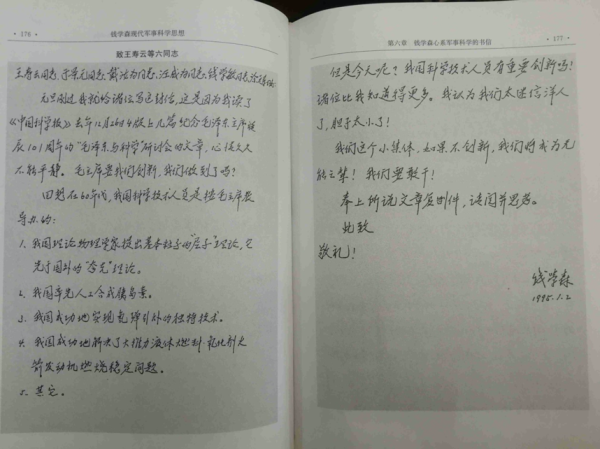 · 176 · 钱学森现代军事科学思想
致王寿云等六同志
王寿云同志、于景元同志、戴汝为同志、汪成为同志、钱学敏同志、涂元季同志：
元旦刚过，我就给诸位写这封信，这是因为我读了
《中国科学报》去年12月26日4版上几篇纪念毛泽东主席诞
辰101周年的“毛泽东与科学”研讨会的文章，心情久久
不能平静。毛主席要我们创新，我们做到了吗？
回想在60年代，我国科学技术人员是按毛主席教
导办的：
1. 我国理论物理学家提出基本粒子的“层子”理论，它
先于国外的“夸克”理论。
2. 我国率先人工合成胰岛素。
3. 我国成功地实现氢弹引爆的独特技术。
4. 我国成功地解决了大推力液体燃料氧化剂火
箭发动机燃烧稳定问题。
5. 其它。
第六章 钱学森心系军事科学的书信 · 177 ·
但是今天呢？我国科学技术人员有重要创新吗？
诸位比我知道得更多。我认为我们太迷信洋人
了，胆子太小了！
我们这个小集体，如果不创新，我们将成为无
能之辈！我们要敢干！
奉上所说文章复制件，请阅并思考。
此致
敬礼！
钱学森
1995.1.2